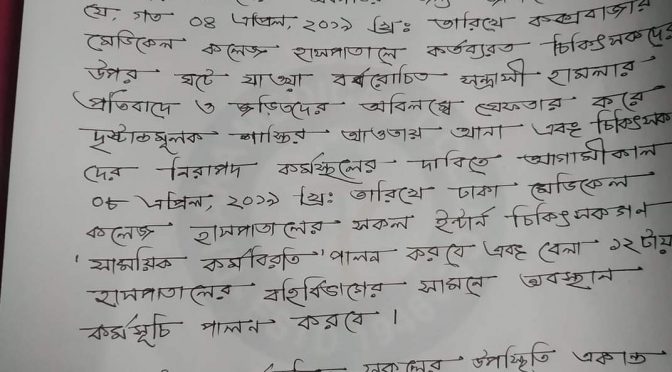 যে, গত ০৪ এপ্রিল, ২০১৯ খ্রিঃ তারিখে কক্সবাজার
মেডিকেল কলেজ হাসপাতালে কর্তব্যরত চিকিৎসকদের
উপর ঘটে যাওয়া বর্বরোচিত সন্ত্রাসী হামলার
প্রতিবাদে ও জড়িতদের অবিলম্বে গ্রেফতার করে
দৃষ্টান্তমূলক শাস্তির আওতায় আনা এবং চিকিৎসক
দের নিরাপদ কর্মস্থলের দাবিতে আগামীকাল
০৮ এপ্রিল, ২০১৯ খ্রিঃ তারিখে ঢাকা মেডিকেল
কলেজ হাসপাতালের সকল ইন্টার্ন চিকিৎসকগন
'সাময়িক কর্মবিরতি' পালন করবে এবং বেলা ১২টায়
হাসপাতালের বহির্বিভাগের সামনে অবস্থান
কর্মসূচি পালন করবে।
সকলের উপস্থিতি একান্ত